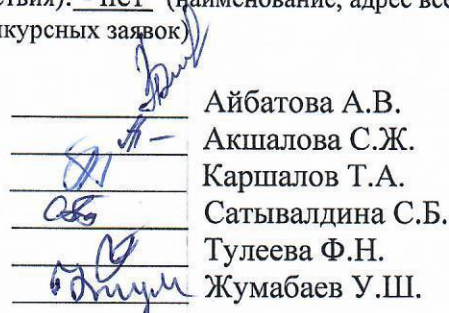 ствия): - нет (наименование, адрес все
нкурсных заявок)
Айбатова А.В.
Акшалова С.Ж.
Каршалов Т.А.
Сатывалдина С.Б.
Тулеева Ф.Н.
Жумабаев У.Ш.